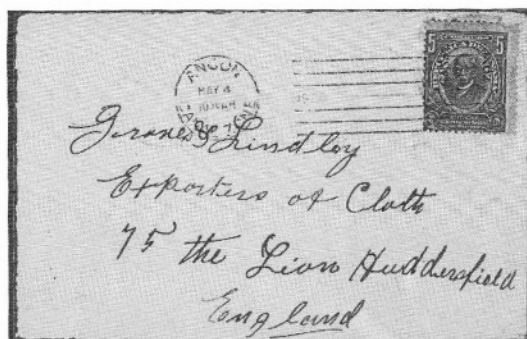 ANCON
MAY 4
5 5
Groves & Lindley
Exporters of Cloth
75 the Lion Huddersfield
England